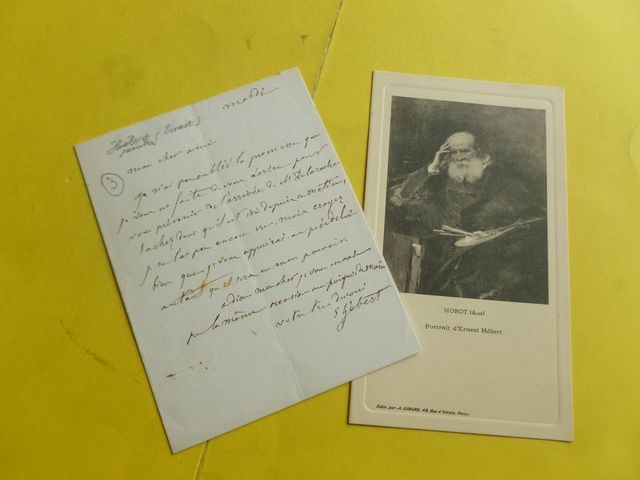 mardi
Hébert (Ernest)
peintre
3
mon cher ami
je n'ai pas oublié la promesse que
je vous ai faite de vous écrire pour
vous prévenir de l'arrivée de Mr Delaroche
sachez donc qu'il est ici depuis ce matin,
je ne l'ai pas encore vu mais croyez
bien que je vous appuierai
autant qu'il sera en mon pouvoir.
adieu mon cher je vous envoie
par la même occasion une poignée de main
votre tout dévoué
E Hébert
MOROT (Aimé)
Portrait d'Ernest Hébert
Édité par A. GIRARD, 42, Rue d'Ulm, Paris.